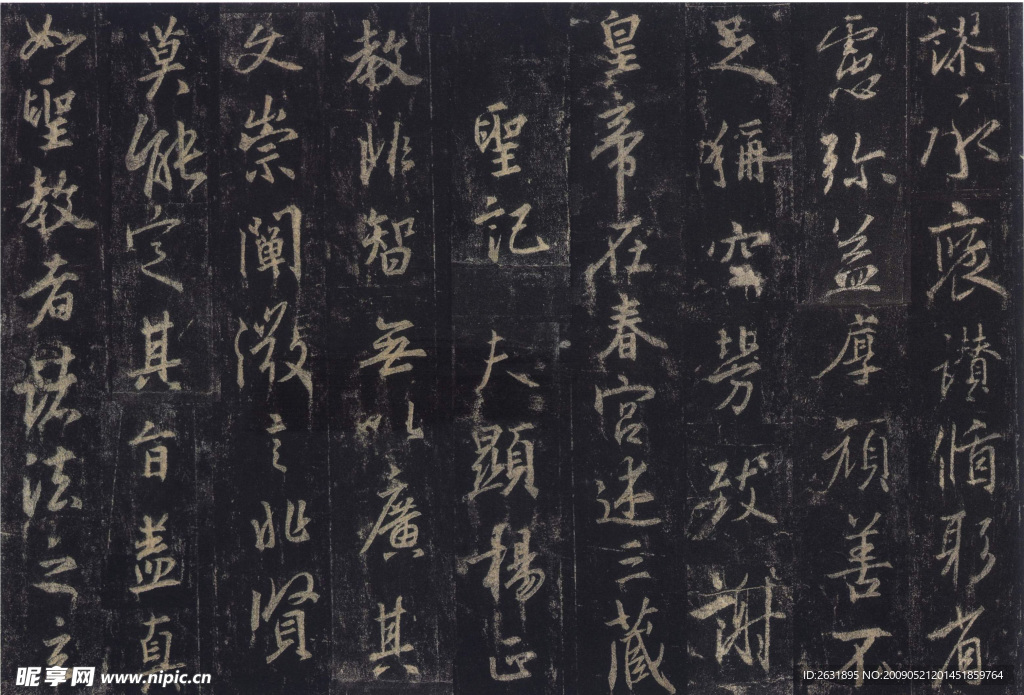 謬承褒讃循躬省
慮弥益厚顔善不
足稱空勞致謝
皇帝在春宮述三藏
聖記　夫顯揚正
教非智無以廣其
文崇闡微言非賢
莫能定其旨盖真
如聖教者諸法之玄
昵享网 www.nipic.cn
ID:2631895 NO:20090521201451859764